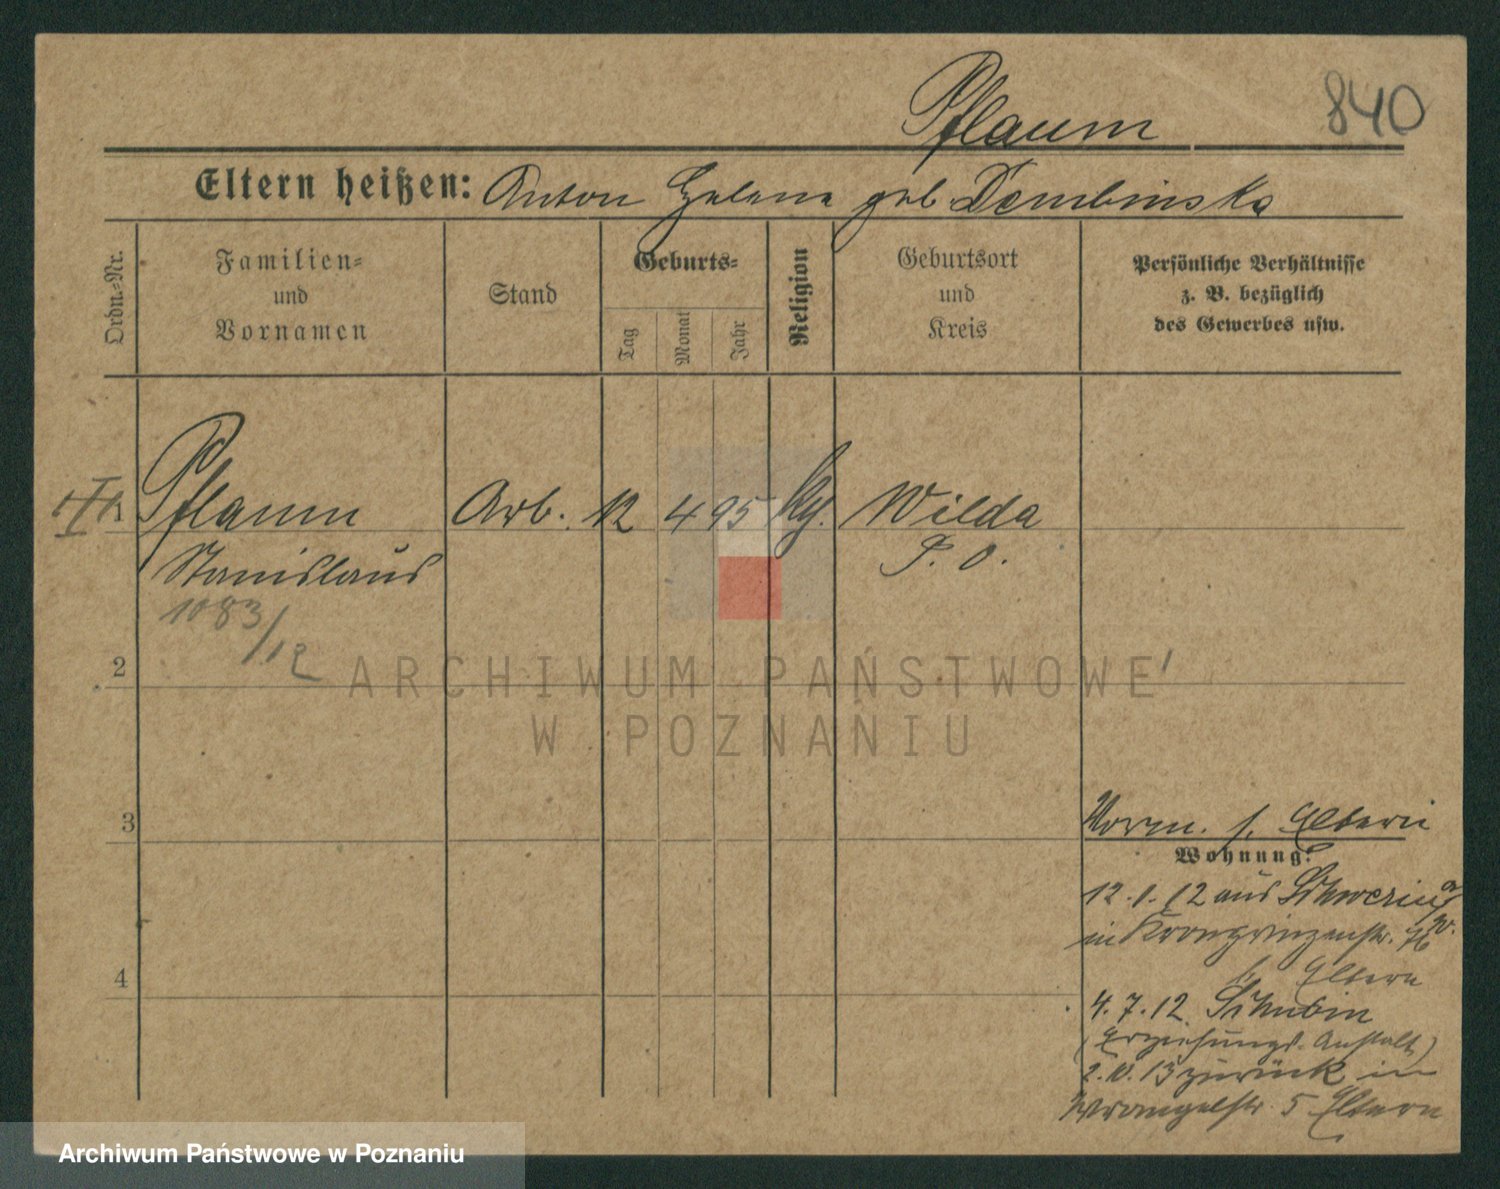 840
Pflaum
Eltern heißen: Anton Helene geb Dembinska
Ordn.-Nr.
Familien-
und
Vornamen
Stand
Geburts-
Tag
Monat
Jahr
Religion
Geburtsort
und
Kreis
Persönliche Verhältnisse
z. B. bezüglich
des Gewerbes usw.
1 Pflaum Arb. 12 4 95 Wilda
Stanislaus P. O.
1083/12
2
3
4
s. Eltern
Wohnung:
12.1.12 aus Schwerin a/W.
in Kronprinzenstr. 76
b. Eltern
4.7.12 Schubin
(Erziehungs-Anstalt)
2.10.13 zurück in
Wrangelstr. 5 Eltern
ARCHIWUM PAŃSTWOWE
W POZNANIU
Archiwum Państwowe w Poznaniu